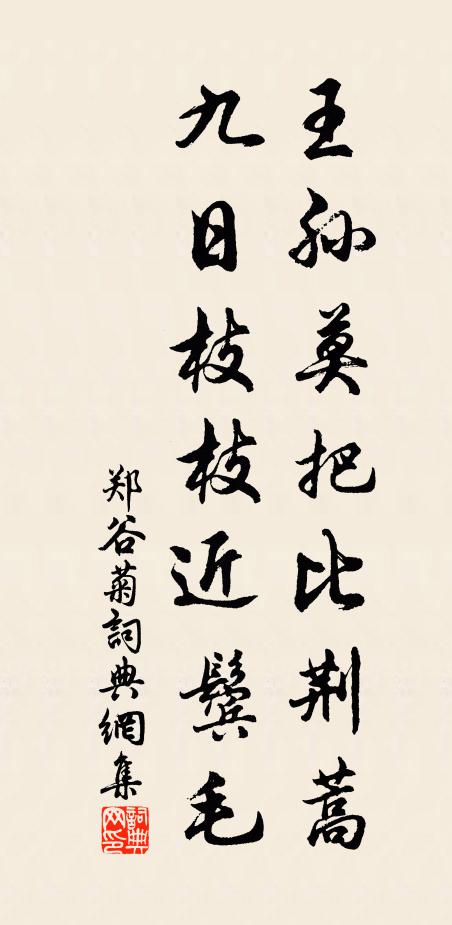 王孙莫把比荆蒿
九日枝枝近鬓毛
郑谷菊詞典網集
詞典网印